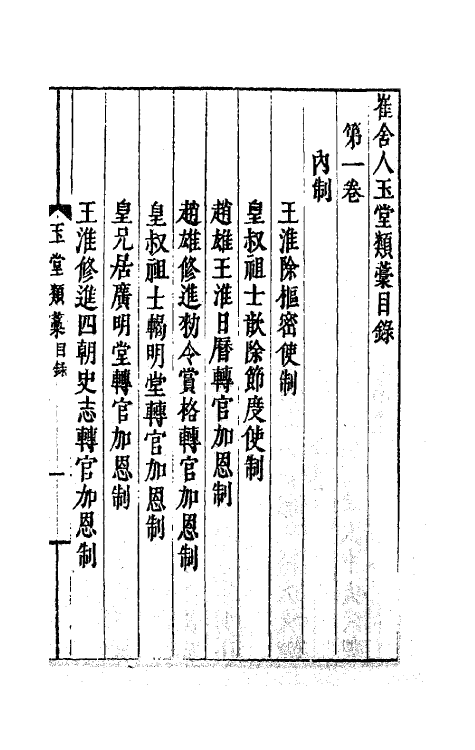 崔舍人玉堂類藳目錄
第一卷
內制
王淮除樞密使制
皇叔祖士歆除節度使制
趙雄王淮日曆轉官加恩制
趙雄修進勑令賞格轉官加恩制
皇叔祖士輵明堂轉官加恩制
皇兄居廣明堂轉官加恩制
王淮修進四朝史志轉官加恩制
玉堂類藳 目錄 一